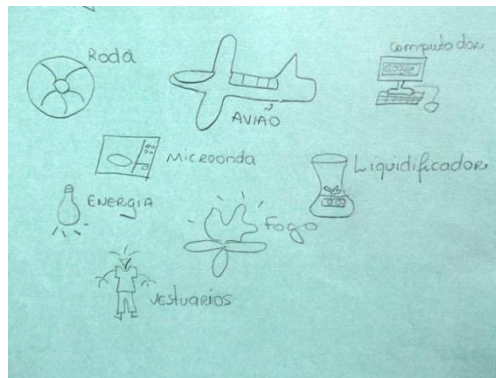 Roda
AVIÃO
computador
Microonda
Liquidificador
ENERGIA
Fogo
vestuarios